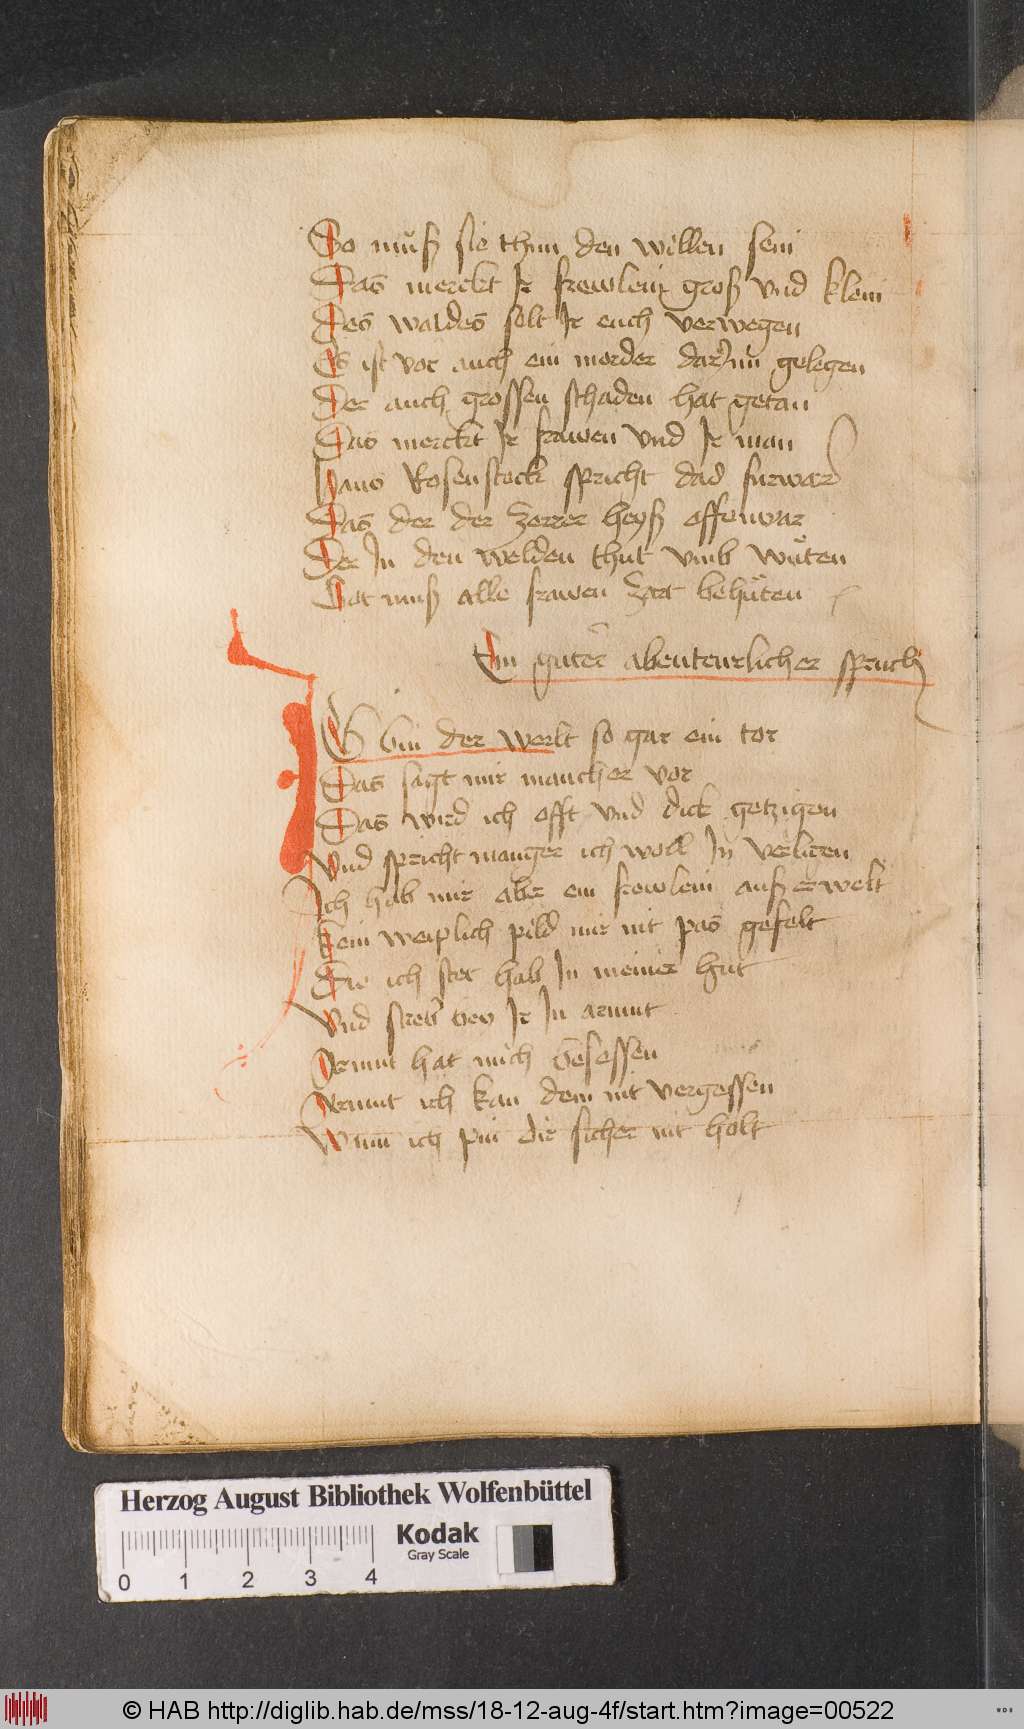 So muß sie thun den willen sein
Das merckt Ir frewlein groß vnd klein
Des waldes solt Ir euch verwegen
Es ist vor auch ein morder darinn gelegen
Der auch grossen schaden hat getan
Das merckt Ir frawen vnd Ir man
Hans Rosenstock spricht das furwar
Das der der zorrer heyß offenwar
Der In den welden thut vmb wüten
Got muß alle frawen zart behüten
Ein guter abenteurlicher spruch
ICh bin der werlt so gar ein tor
Das sagt mir mancher vor
Das wird ich offt vnd dick getzigen
Vnd spricht manger ich woll In verligen
Ich hab mir aber ein frewlein außerwelt
Kein weiplich pild mir nit pas gefelt
Die ich stet hab In meiner hut
Vnd streb bey Ir In armut
Armut hat mich besessen
Armut ich kan dein nit vergessen
Wann ich pin dir sicher nit holt
Herzog August Bibliothek Wolfenbüttel
Kodak
Gray Scale
0 1 2 3 4
© HAB http://diglib.hab.de/mss/18-12-aug-4f/start.htm?image=00522